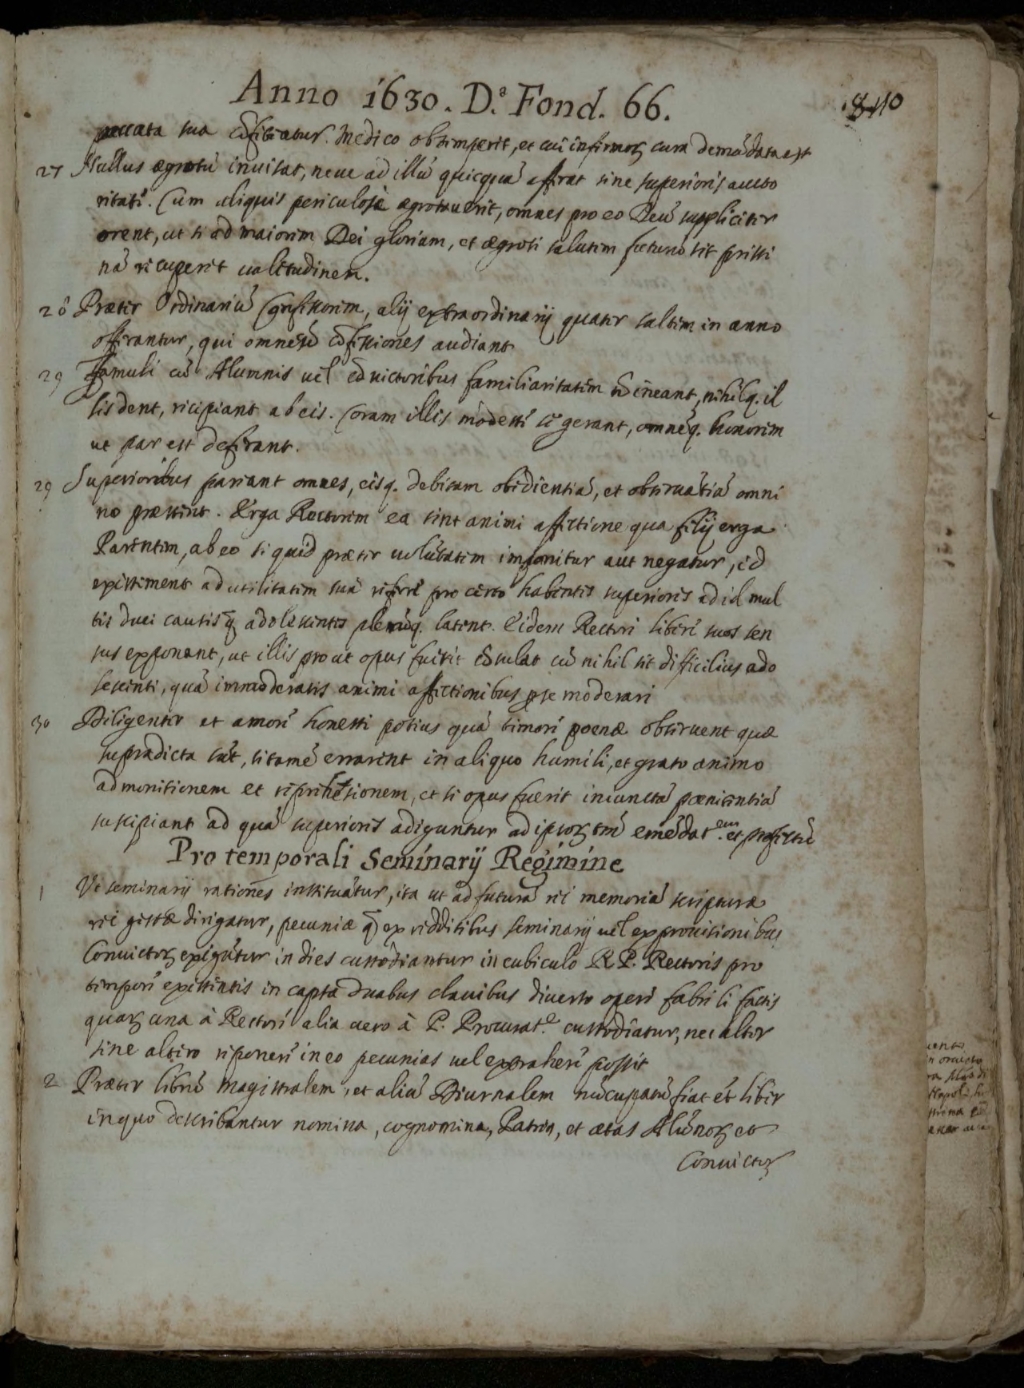 Anno 1630. D.ª Fond. 66.
110
peccata sua cōfiteatur. Medico obtemperet, et cui infirmoꝝ cura demādata est
27 Nullus ægrotū inuisat, neue ad illū quicquā afferat sine superioris aucto
ritate. Cum aliquis periculose ægrotauerit, omnes pro eo Deū suppliciter
orent, ut si ad maiorem Dei gloriam, et ægroti salutem futurū sit pristi
nā recuperet ualetudinem.
28 Præter Ordinariū Confessorem, alij extraordinarij quater saltem in anno
offerantur, qui omneīū cōfessiones audiant
29 Famuli cū Alumnis uel cōuictoribus familiaritatem nō ineant, nihilq. il
lis dent, recipiant ab eis. Coram illis modeste se gerant, omnēq. honorem
ut par est deferant.
29 Superioribus pareant omnes, eisq. debitam obedientiā, et obseruātiā omni
no præstent. Erga Rectorem ea sint animi affectione qua filij erga
Parentem, ab eo si quid præter uolūtatem imponitur aut negatur, id
existiment ad utilitatem suā referri pro certo habentes superiores ad id mul
tis duci causis q̄ adolescentes plerūq. latent. Eidem Rectori libere suos sen
sus exponant, ut illis prout opus fuerit cōsulat cū nihil sit difficilius ado
lescenti, quā immoderatis animi affectionibus p se moderari
30 Diligenter et amore honesti potius quā timore poenæ obseruent quæ
supradicta sūt, si tamē errarint in aliquo humili, et grato animo
admonitionem et reprihēsionem, et si opus fuerit iniunctā pœnitentiā
suscipiant ad quā superiores adiguntur ad ipsoꝝ tm̄ emēdat.em et profectū
Pro temporali Seminarij Regimine
1 Ut seminarij rationes instituātur, ita ut ad futurā rei memoriā scripturæ
rei gestæ dirigatur, pecuniæ q̄ ex redditibus seminarij uel ex prouisionibus
Conuictoꝝ exigūtur in dies custodiantur in cubiculo R. P. Rectoris pro
tempore existentis in capsa duabus clauibus diuerso opere fabrili factis
quarꝝ una à Rectore alia uero à P. Procurat.e custodiatur, nec alter
sine altero reponere in eo pecunias uel extrahere possit
2 Præter librū magistralem, et aliū Diurnalem nūcupatū fiat et liber
in quo describantur nomina, cognomina, Patria, et ætas Alūnoꝝ et
Conuictoꝝ